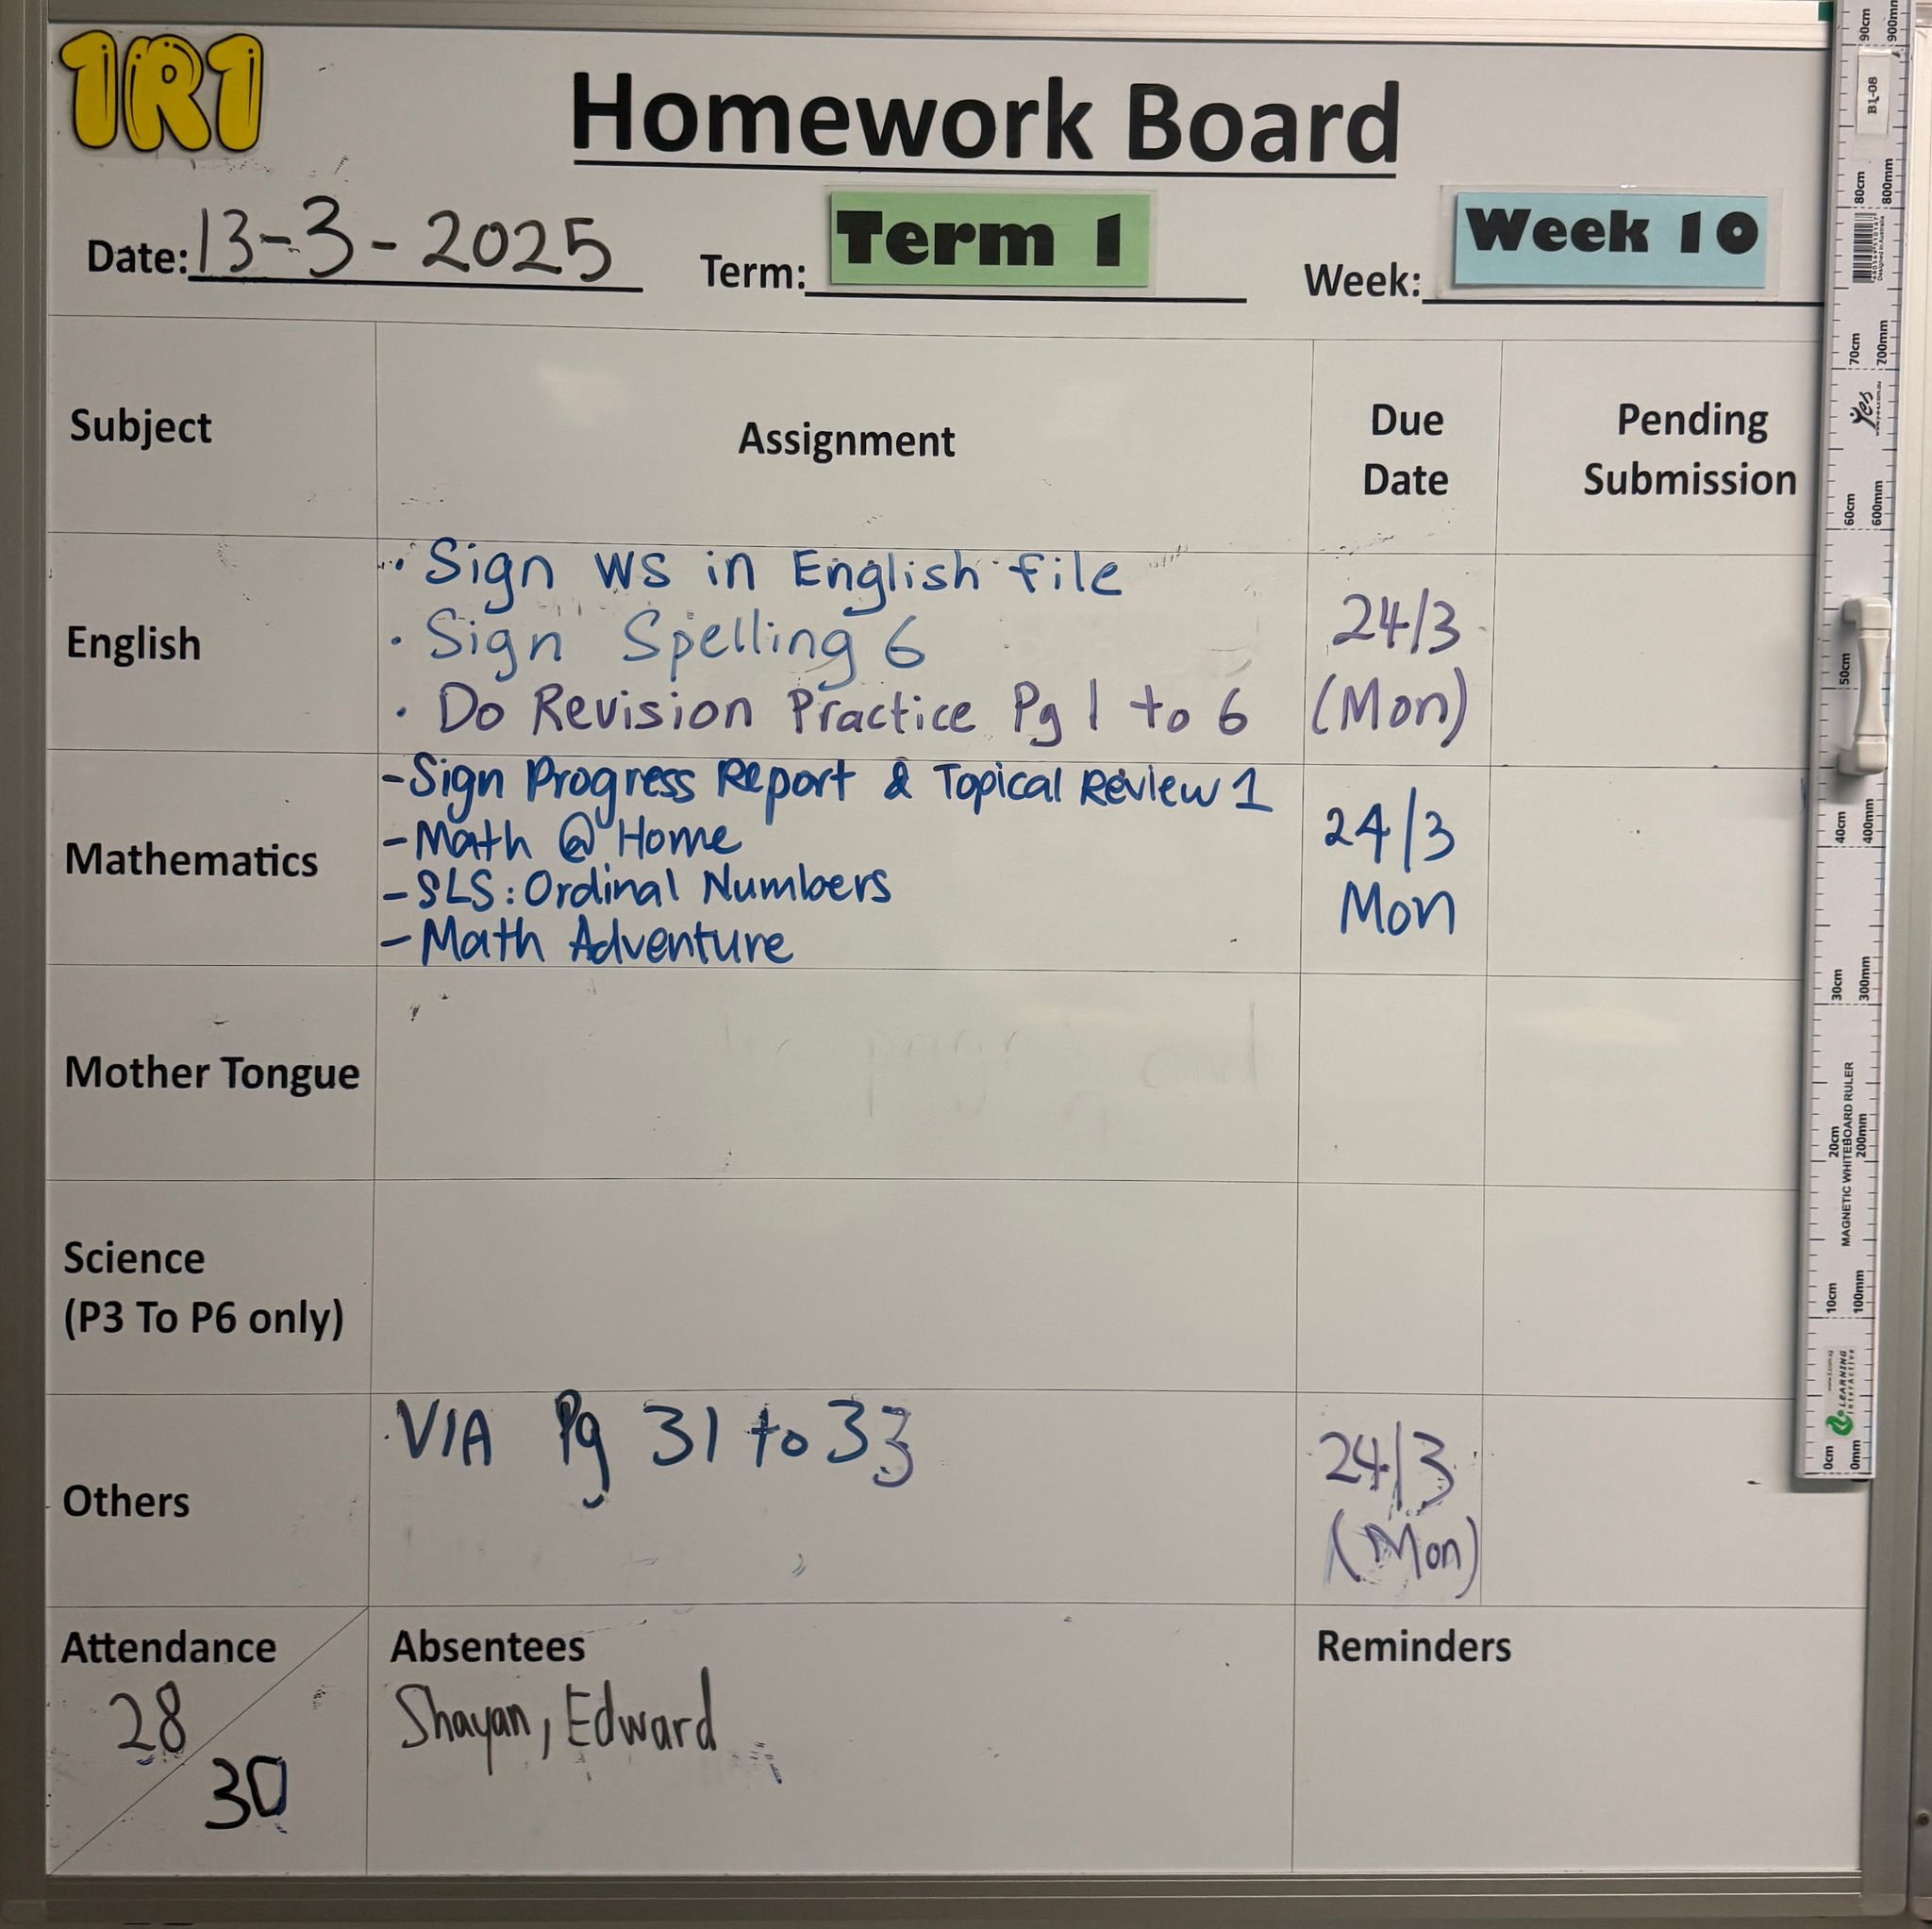 1R1
Homework Board
Date: 13-3-2025 Term: Term 1 Week: Week 10
Subject
Assignment
Due
Date
Pending
Submission
English
· Sign WS in English file
· Sign Spelling 6
· Do Revision Practice Pg 1 to 6
24/3
(Mon)
Mathematics
- Sign Progress Report & Topical Review 1
- Math @ Home
- SLS: Ordinal Numbers
- Math Adventure
24/3
Mon
Mother Tongue
Science
(P3 To P6 only)
Others
VIA Pg 31 to 33
24/3
(Mon)
Attendance
28
30
Absentees
Shayan, Edward
Reminders
90cm 900mm
B1-08
80cm 800mm
70cm 700mm
Yes
60cm 600mm
50cm
40cm 400mm
30cm 300mm
20cm 200mm
MAGNETIC WHITEBOARD RULER
10cm 100mm
LEARNING
interactive
0cm 0mm